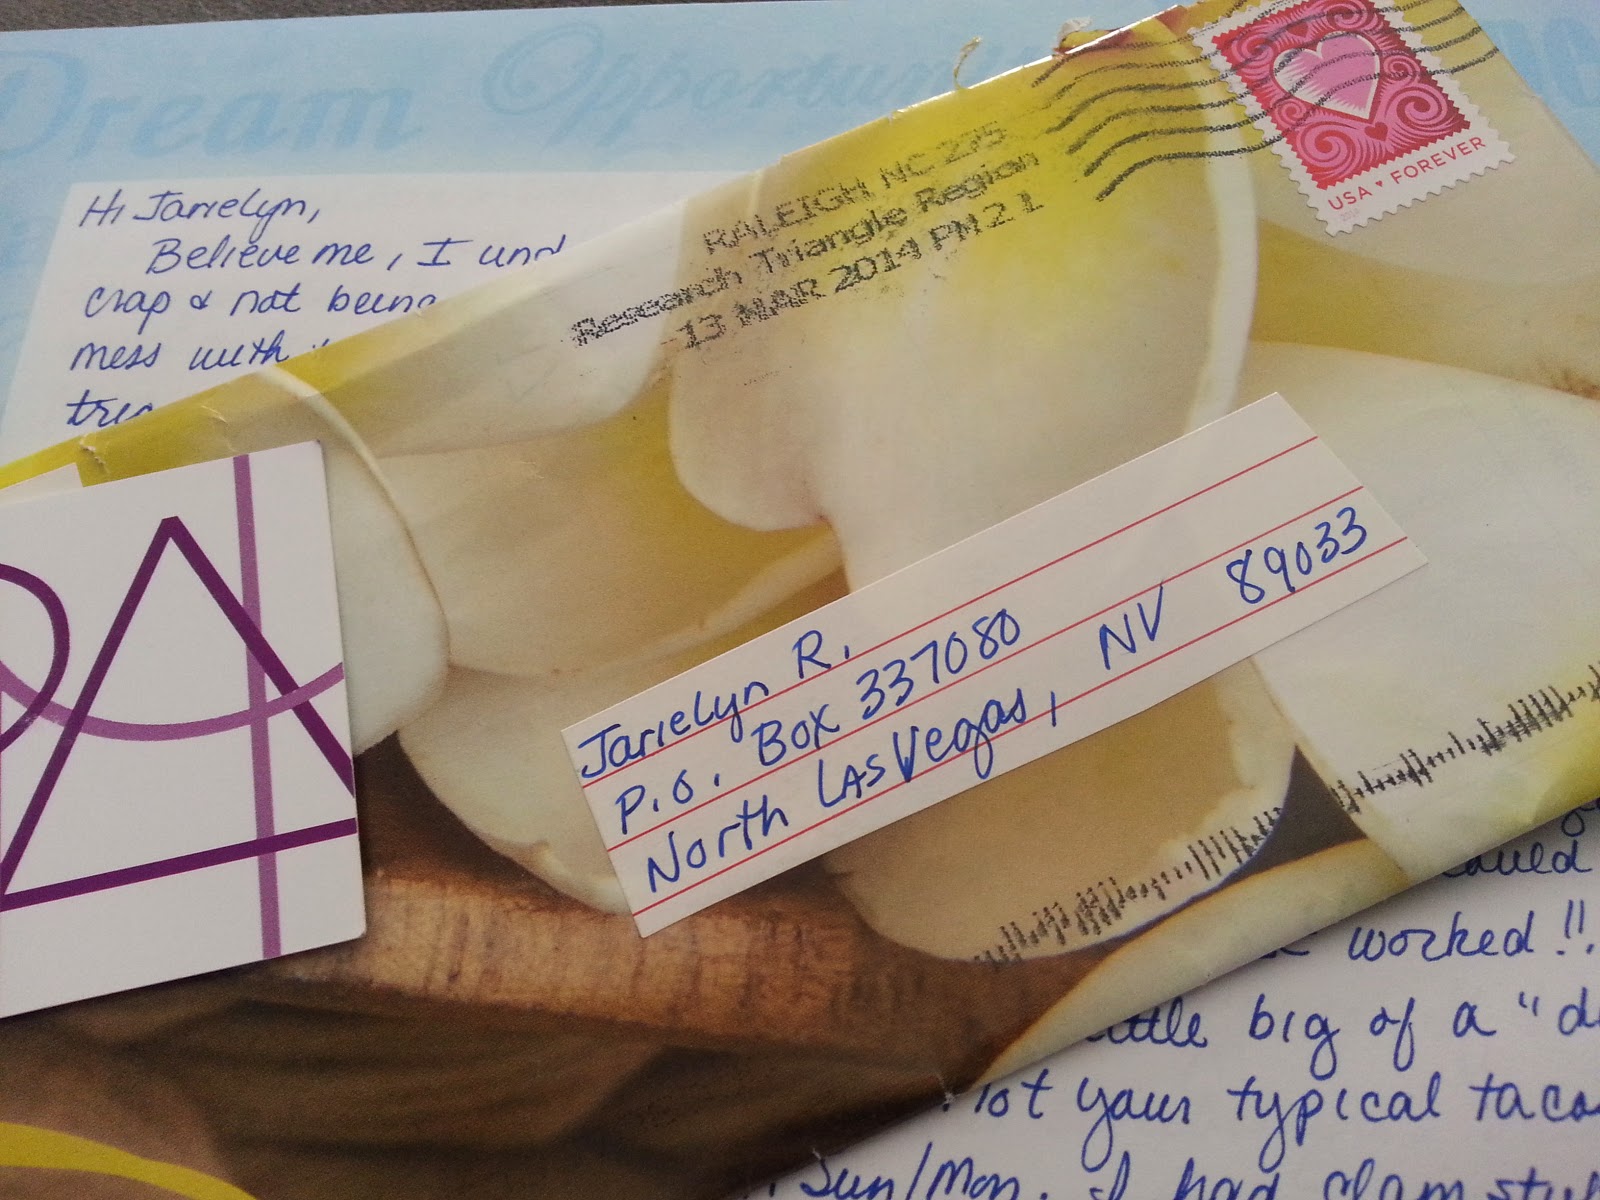 Dream Opportun
Hi Jarrelyn,
Believe me, I und
crap & not being
mess with
RALEIGH NC 275
Research Triangle Region
13 MAR 2014 PM 2 L
USA FOREVER
Jarrelyn R.
P.O. Box 337080
North Las Vegas, NV 89033
worked!!.
big of a "d
your typical taco
Sun/Mon. I had clam